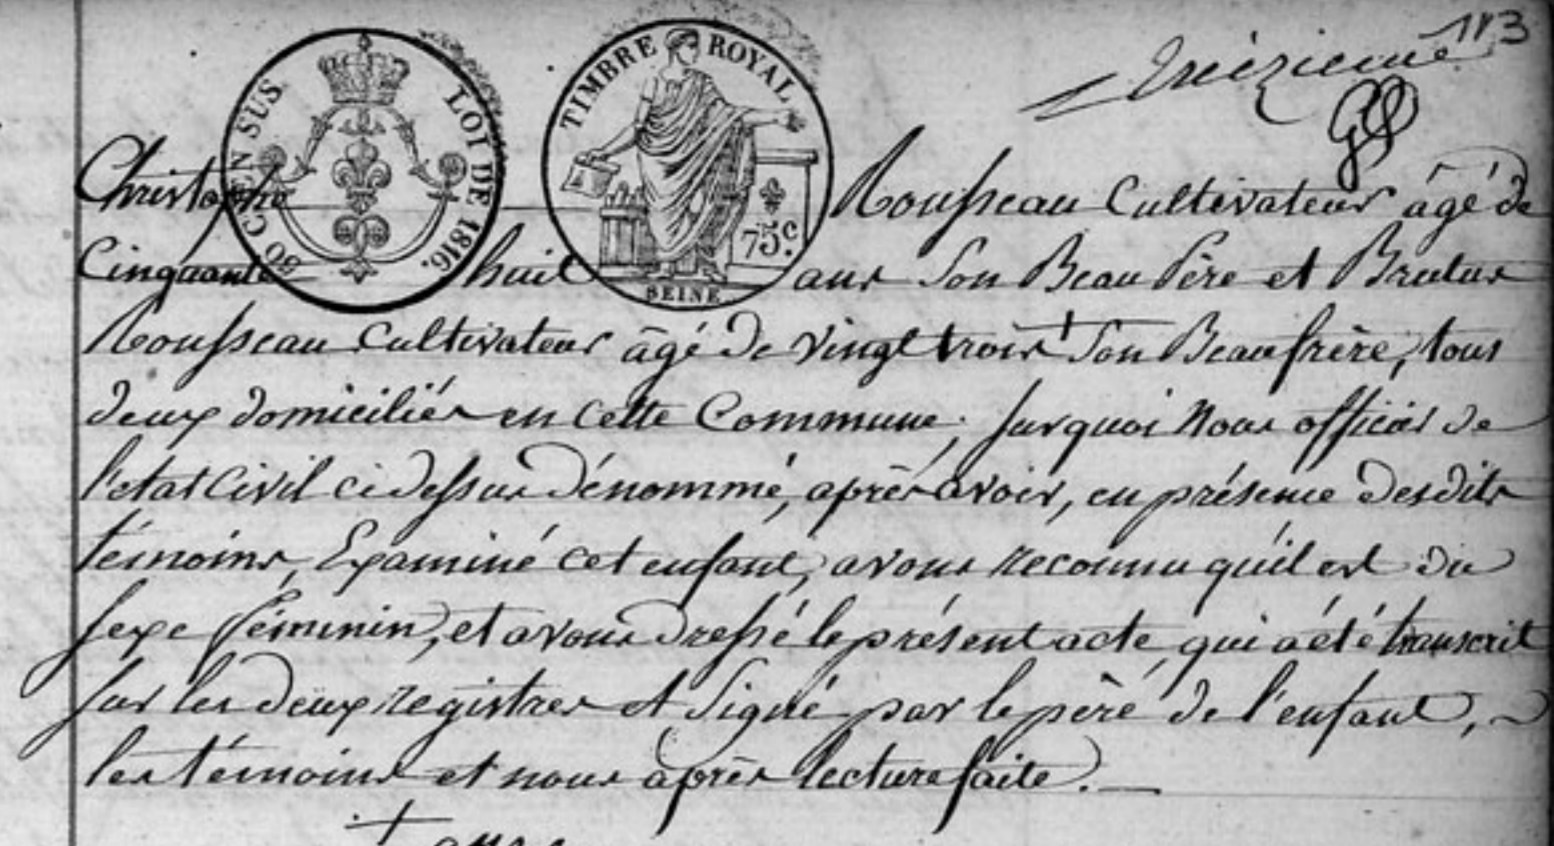 113
treizieme
GP
50 CEN SUS LOI DE 1816.
TIMBRE ROYAL
75c.
SEINE
Christophe Rousseau Cultivateur âgé de
Cinquante huit ans Son Beau Père et Brutus
Rousseau Cultivateur âgé de vingt trois + Son Beaufrère, tous
deux domiciliés en cette Commune; surquoi Nous officier de
l'etat Civil ci dessus dénommé, après avoir, en présence desdits
témoins, Examiné cet enfant, avons reconnu qu'il est du
sexe féminin, et avons dressé le présent acte qui a été transcrit
sur les deux registres et Signé par le père de l'enfant,
les témoins et nous après lecture faite.
+ ans